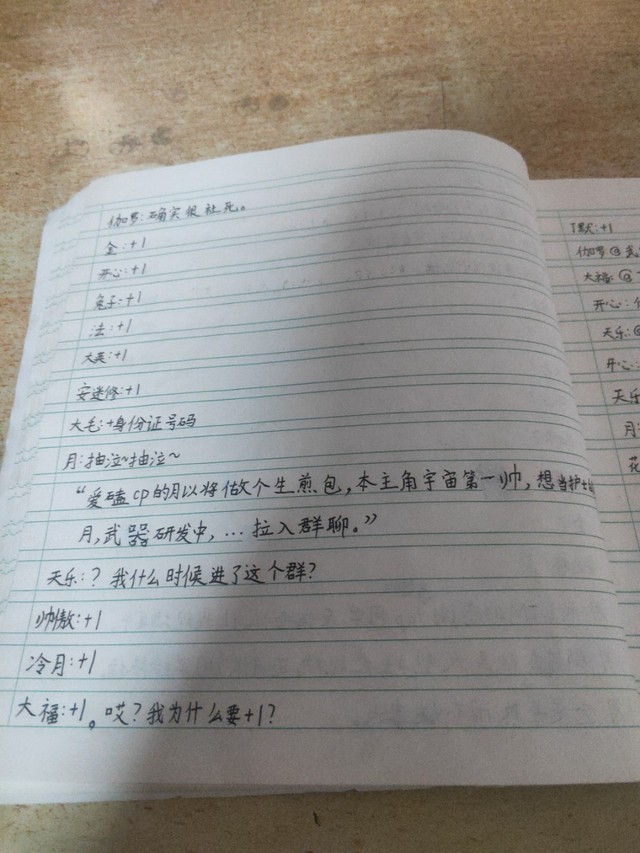 伽罗:确实很社死。
金:+1
开心:+1
兔子:+1
法:+1
大英:+1
安迷修:+1
大毛:+身份证号码
月:抽泣~抽泣~
“爱磕cp的月以将做个生煎包,本主角宇宙第一帅,想当护士的
月,武器研发中,…拉入群聊。”
天乐:?我什么时候进了这个群?
帅傲:+1
冷月:+1
大福:+1。哎?我为什么要+1?
默:+1
伽罗@武
大福:@
开心:
天乐:@
开心:
天乐
月:
花